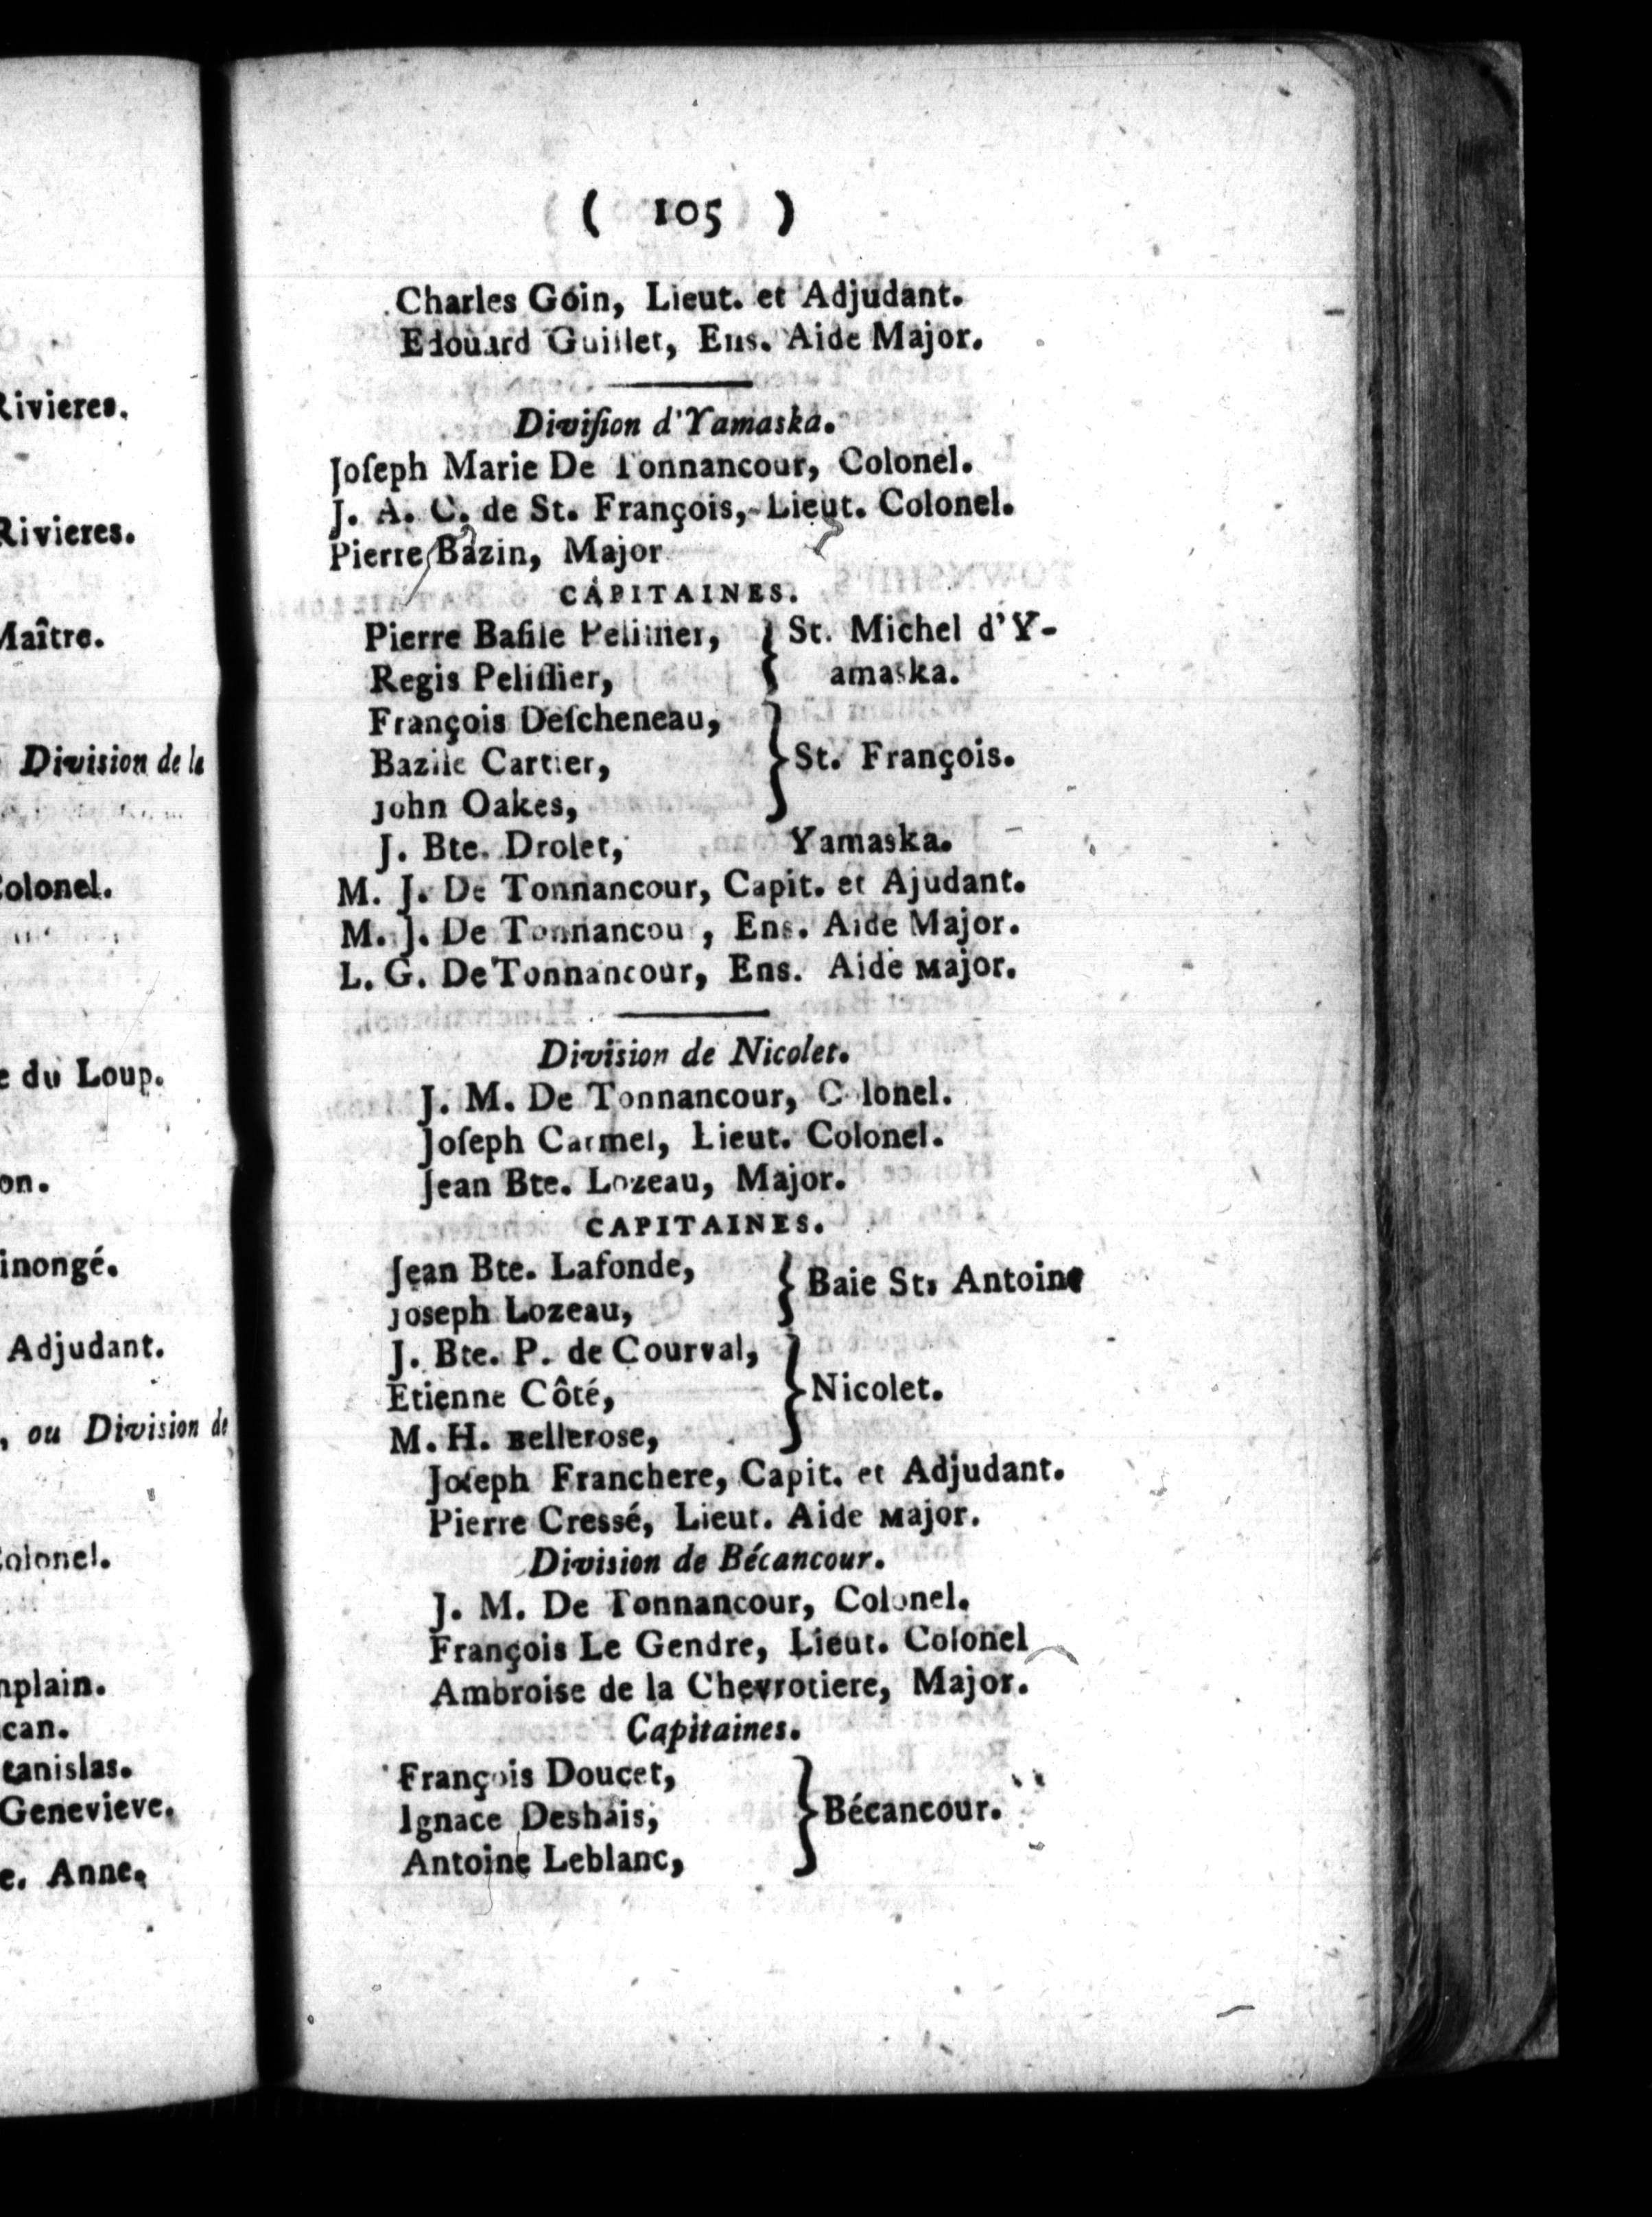 Rivieres.
Rivieres.
Maître.
Division de la
Colonel.
e du Loup.
on.
inongé.
Adjudant.
, ou Division de
Colonel.
mplain.
can.
tanislas.
Genevieve.
e. Anne.
( 105 )
Charles Goin, Lieut. et Adjudant.
Edouard Guillet, Ens. Aide Major.
Diviſion d'Yamaska.
Joſeph Marie De Tonnancour, Colonel.
J. A. C. de St. François, Lieut. Colonel.
Pierre Bazin, Major
CAPITAINES.
Pierre Baſile Peliſſier, } St. Michel d'Y-
Regis Peliſſier, amaska.
François Deſcheneau,
Bazile Cartier, } St. François.
John Oakes,
J. Bte. Drolet, Yamaska.
M. J. De Tonnancour, Capit. et Ajudant.
M. J. De Tonnancou , Ens. Aide Major.
L. G. De Tonnancour, Ens. Aide Major.
Division de Nicolet.
J. M. De Tonnancour, C lonel.
Joſeph Carmel, Lieut. Colonel.
Jean Bte. Lozeau, Major.
CAPITAINES.
Jean Bte. Lafonde, } Baie St. Antoine
Joseph Lozeau,
J. Bte. P. de Courval,
Etienne Côté, } Nicolet.
M. H. Bellerose,
Joſeph Franchere, Capit. et Adjudant.
Pierre Cressé, Lieut. Aide Major.
Division de Bécancour.
J. M. De Tonnancour, Colonel.
François Le Gendre, Lieut. Colonel
Ambroise de la Chevrotiere, Major.
Capitaines.
François Doucet,
Ignace Deshais, } Bécancour.
Antoine Leblanc,